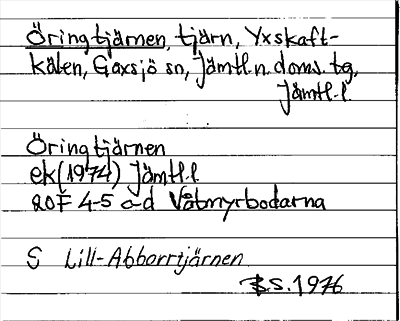 Öringtjärnen, tjärn, Yxskaft-
kälen, Gåxsjö sn, Jämtl. n. doms. tg,
Jämtl. l.
Öringtjärnen
ek (1974) Jämtl. l
20F 4-5 c-d Våtmyrbodarna
S Lill-Abborrtjärnen
B.S. 1976